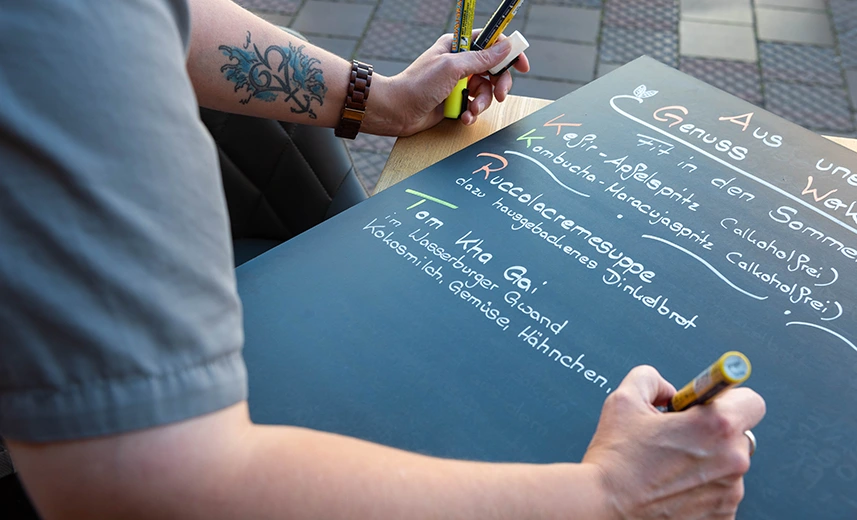 Aus
Genuss Werk
Fit in den Sommer
Kefir-Apfelspritz (alkoholfrei)
Kombucha-Maracujaspritz (alkoholfrei)
Ruccolacremesuppe
dazu hausgebackenes Dinkelbrot
Tom Kha Gai
im Wasserburger Gwand
Kokosmilch, Gemüse, Hähnchen,